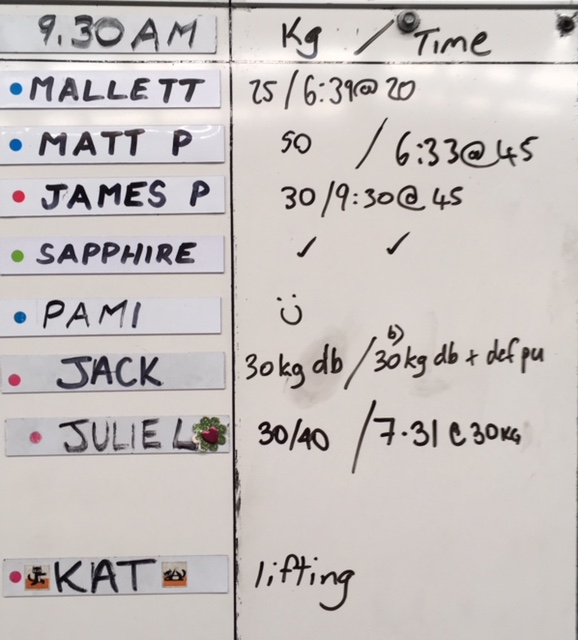 9.30AM Kg / Time
MALLETT 25/6:39@20
MATT P 50 / 6:33@45
JAMES P 30/9:30@45
SAPPHIRE ✓ ✓
PAMI
JACK 30kg db / b) 30kg db + def pu
JULIE L 30/40 / 7.31 @ 30KG
KAT lifting